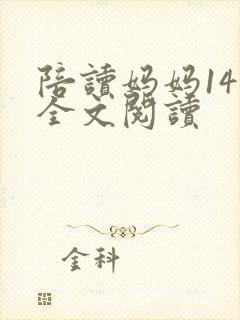 陪讀妈妈14
全文閱讀
金科